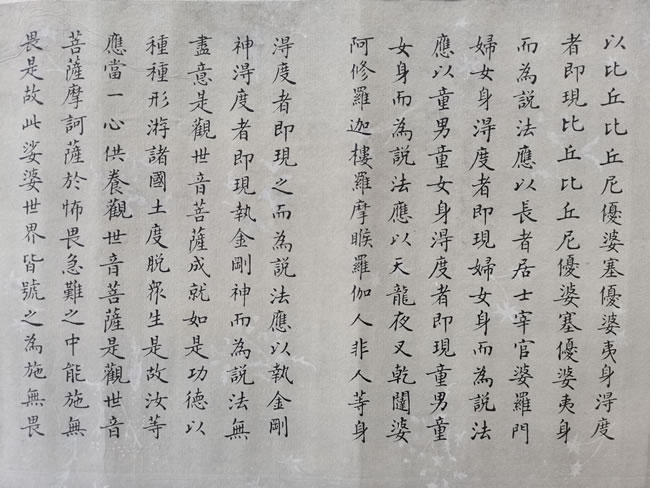 以比丘比丘尼優婆塞優婆夷身得度
者即現比丘比丘尼優婆塞優婆夷身
而為說法應以長者居士宰官婆羅門
婦女身得度者即現婦女身而為說法
應以童男童女身得度者即現童男童
女身而為說法應以天龍夜叉乾闥婆
阿修羅迦樓羅摩睺羅伽人非人等身
得度者即現之而為說法應以執金剛
神得度者即現執金剛神而為說法無
盡意是觀世音菩薩成就如是功德以
種種形游諸國土度脫衆生是故汝等
應當一心供養觀世音菩薩是觀世音
菩薩摩訶薩於怖畏急難之中能施無
畏是故此娑婆世界皆號之為施無畏